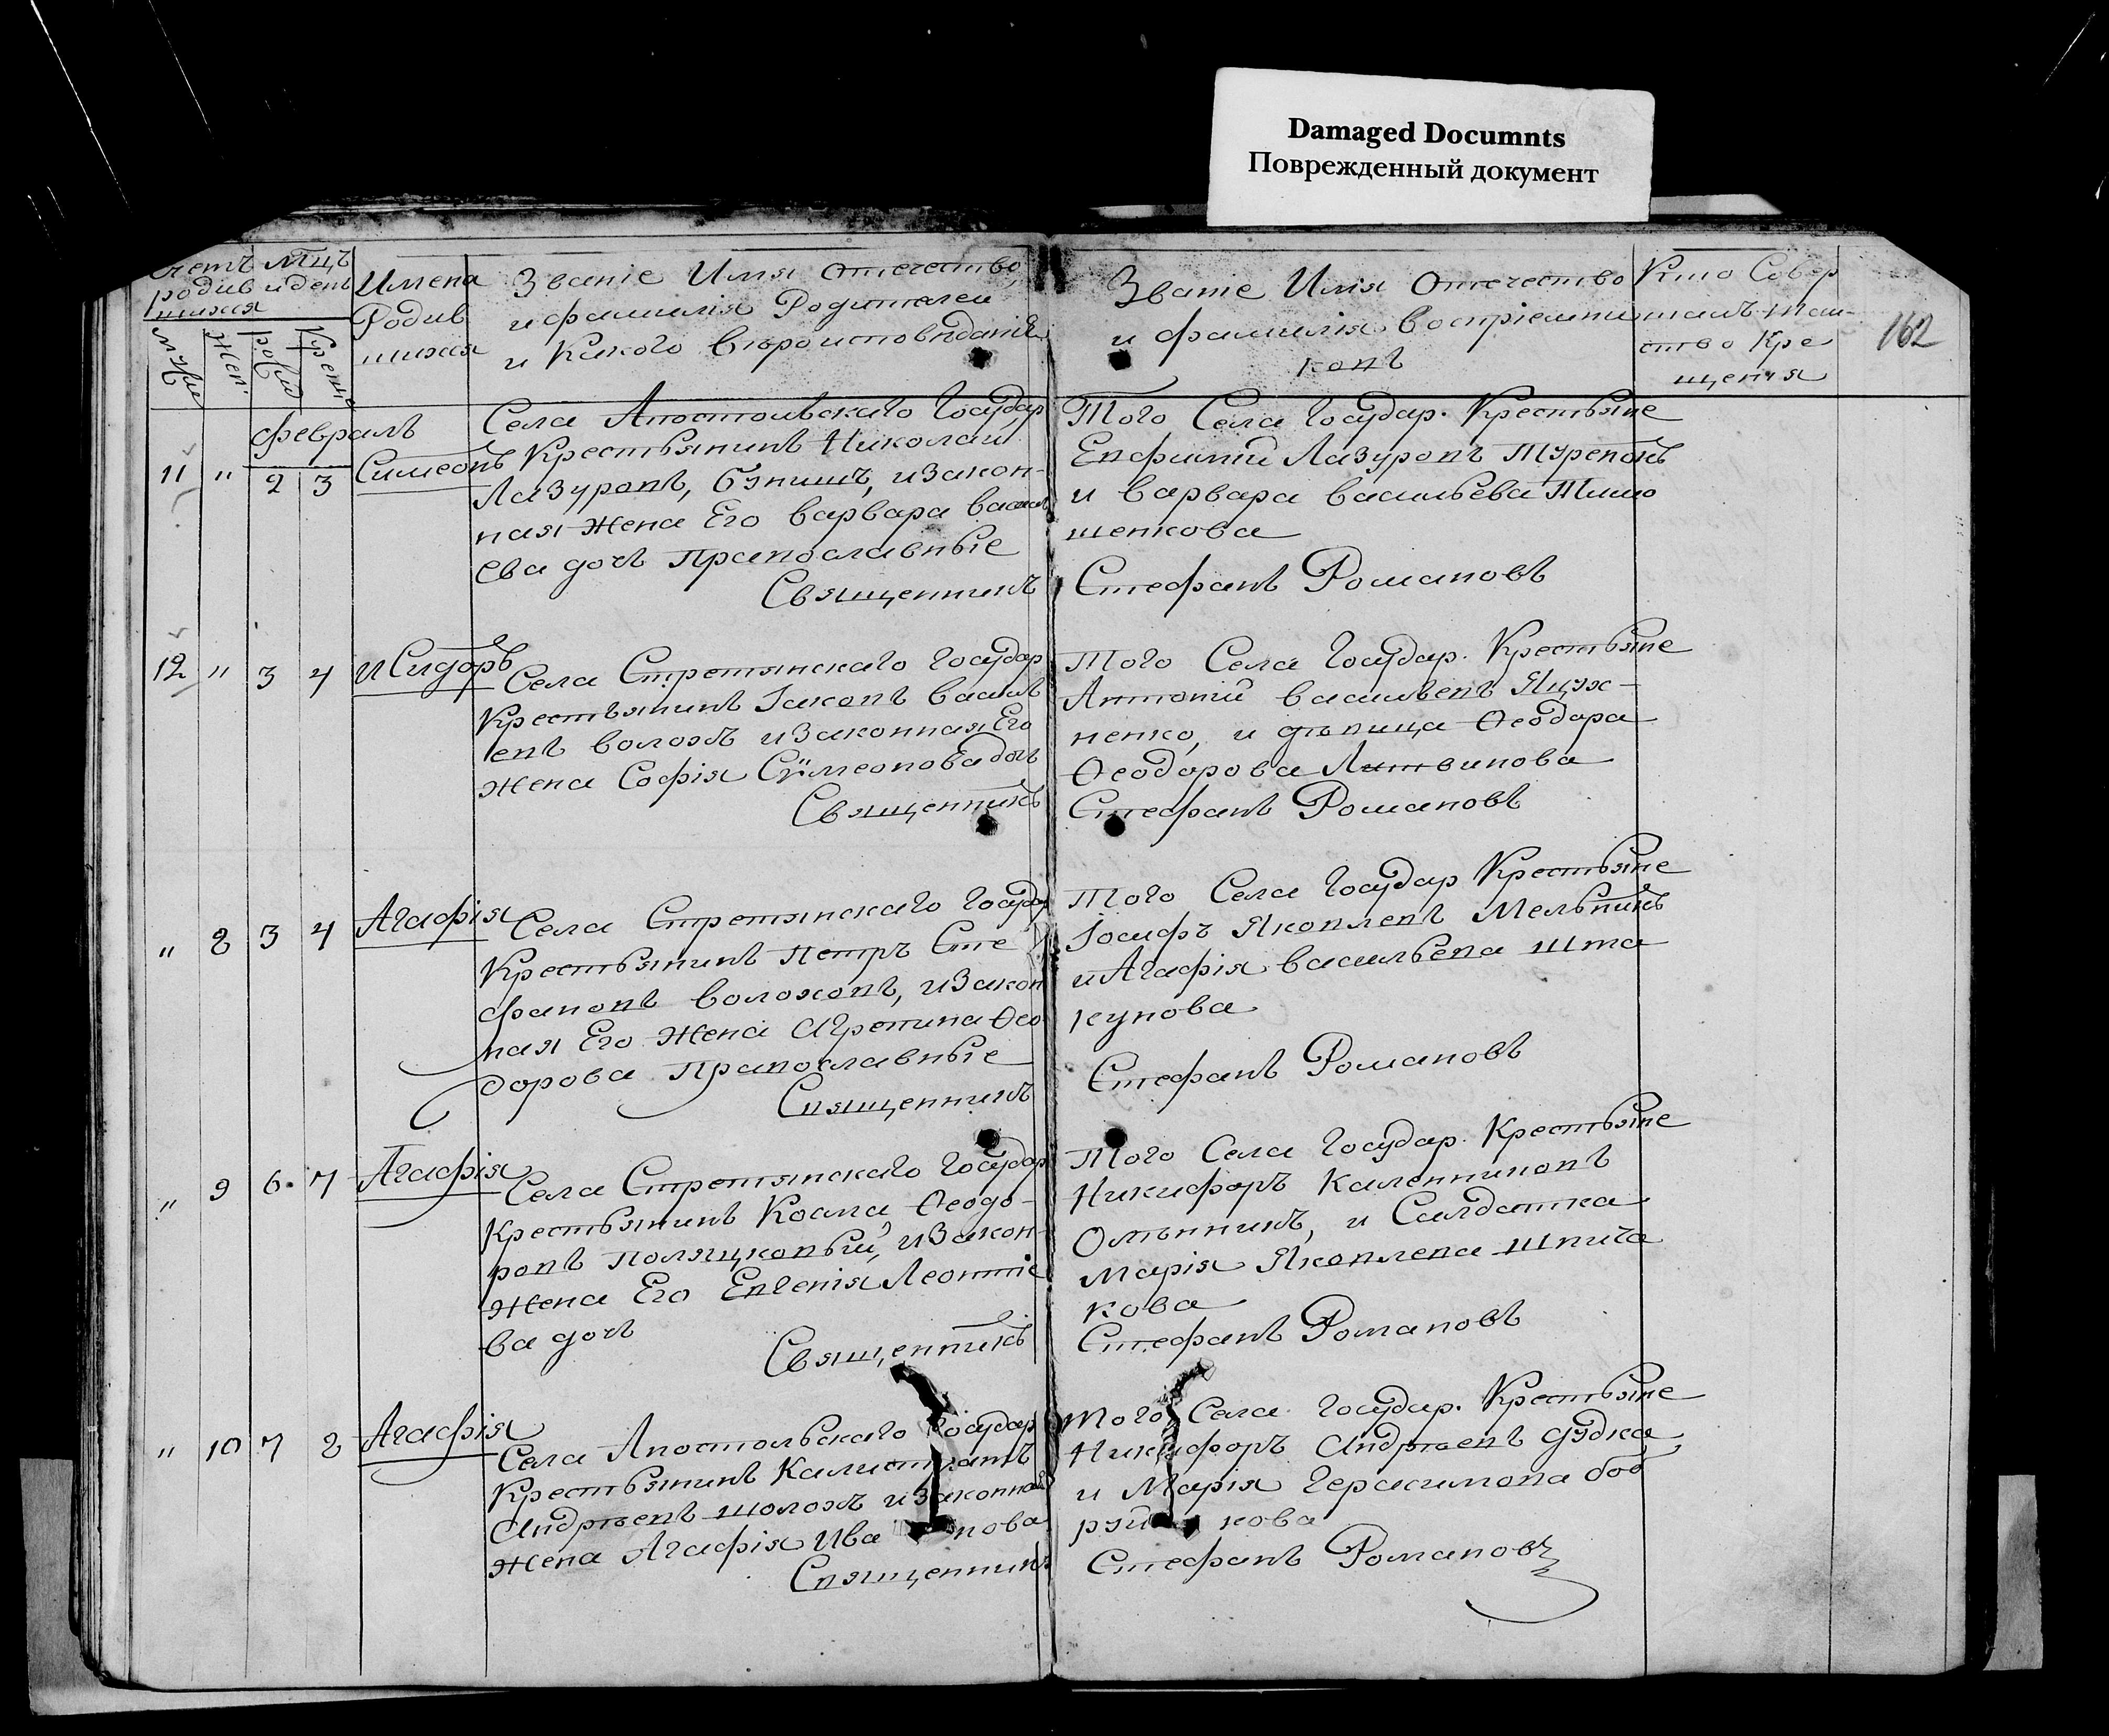 Damaged Documnts
Поврежденный документ
162
Счетъ Мцъ
родив и день
шихся
Муж
Жен.
рожд
Креще
Имена
Родив
шихся
Званіе Имя Отечество,
и фамилія Родителей
и Какого вѣроисповѣданія
Званіе Имя Отечество
и фамилія воспріемни
ковъ
Кто Совер
шалъ таи-
ство Кре
щенія
февраль
11 " 2 3 Симеонъ
Села Апостольскаго Государ
Крестьянинъ Николай
Лазуровъ, и закон-
ная Жена Его Варвара Василь
ева дочь Православные
Священникъ
Того Села Государ. Крестьяне
Евфимій Лазуровъ
и Варвара Васильева Тимо
шенкова
Стефанъ Романовъ
12 " 3 4 ИСидоръ
Села Стретинскаго Государ
Крестьянинъ Іаковъ Василь
евъ Волохъ и законная Его
жена Софія Сѵмеонова дочь
Священникъ
Того Села Государ. Крестьяне
Антоній Васильевъ Яцух-
ненко, и дѣвица Ѳеодора
Ѳеодорова Литвинова
Стефанъ Романовъ
" 8 3 4 Агафія
Села Стретинскаго Государ
Крестьянинъ Петръ Сте
фановъ Волоховъ, и закон
ная Его Жена Агрепина Ѳео
дорова Православные
Священникъ
Того Села Государ Крестьяне
Іосифъ Яковлевъ Мельникъ
и Агафія Васильева Шта
кунова
Стефанъ Романовъ
" 9 6. 7 Агафія
Села Стретинскаго Государ
Крестьянинъ Косма Ѳеодо-
ровъ Поляцковый, и закон-
Жена Его Евгенія Леонтіе
ва дочь
Священникъ
Того Села Государ. Крестьяне
Никифоръ Каленниковъ
Олѣнникъ, и Салдатка
Марія Яковлева Шпича
кова
Стефанъ Романовъ
" 10 7 8 Агафія
Села Апостольскаго Государ
Крестьянинъ Калистратъ
Андреевъ Шолохъ и законная
Жена Агафія Ива нова
Священникъ
Того Села Государ. Крестьяне
Никифоръ Андреевъ Дудка
и Марія Герасимова Боб
кова
Стефанъ Романовъ